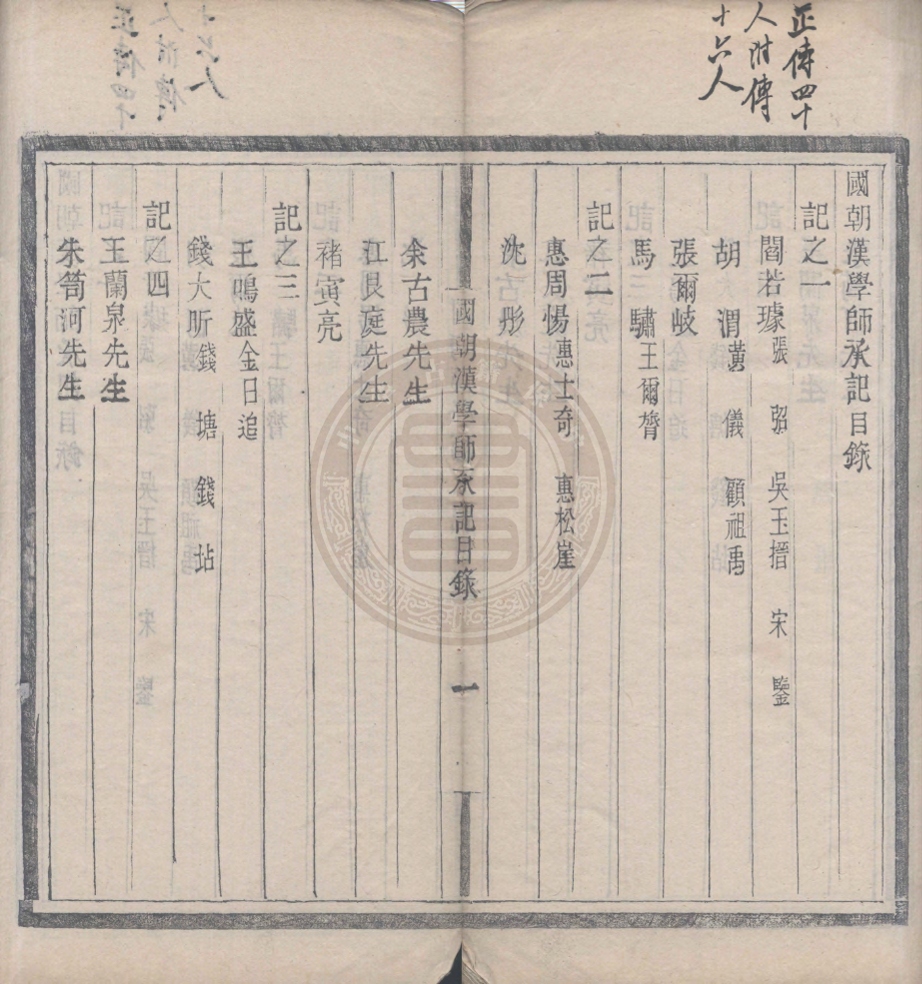 正傳四十
人附傳
十六人
國朝漢學師承記目錄
記之一
閻若璩張 弨 吳玉搢 宋 鑒
胡 渭黃 儀 顧祖禹
張爾岐
馬 驌王爾膂
記之二
惠周惕惠士奇 惠松崖
沈彤
國朝漢學師承記目錄 一
余古農先生
江艮庭先生
褚寅亮
記之三
王鳴盛金日追
錢大昕錢 塘 錢 坫
記之四
王蘭泉先生
朱笥河先生